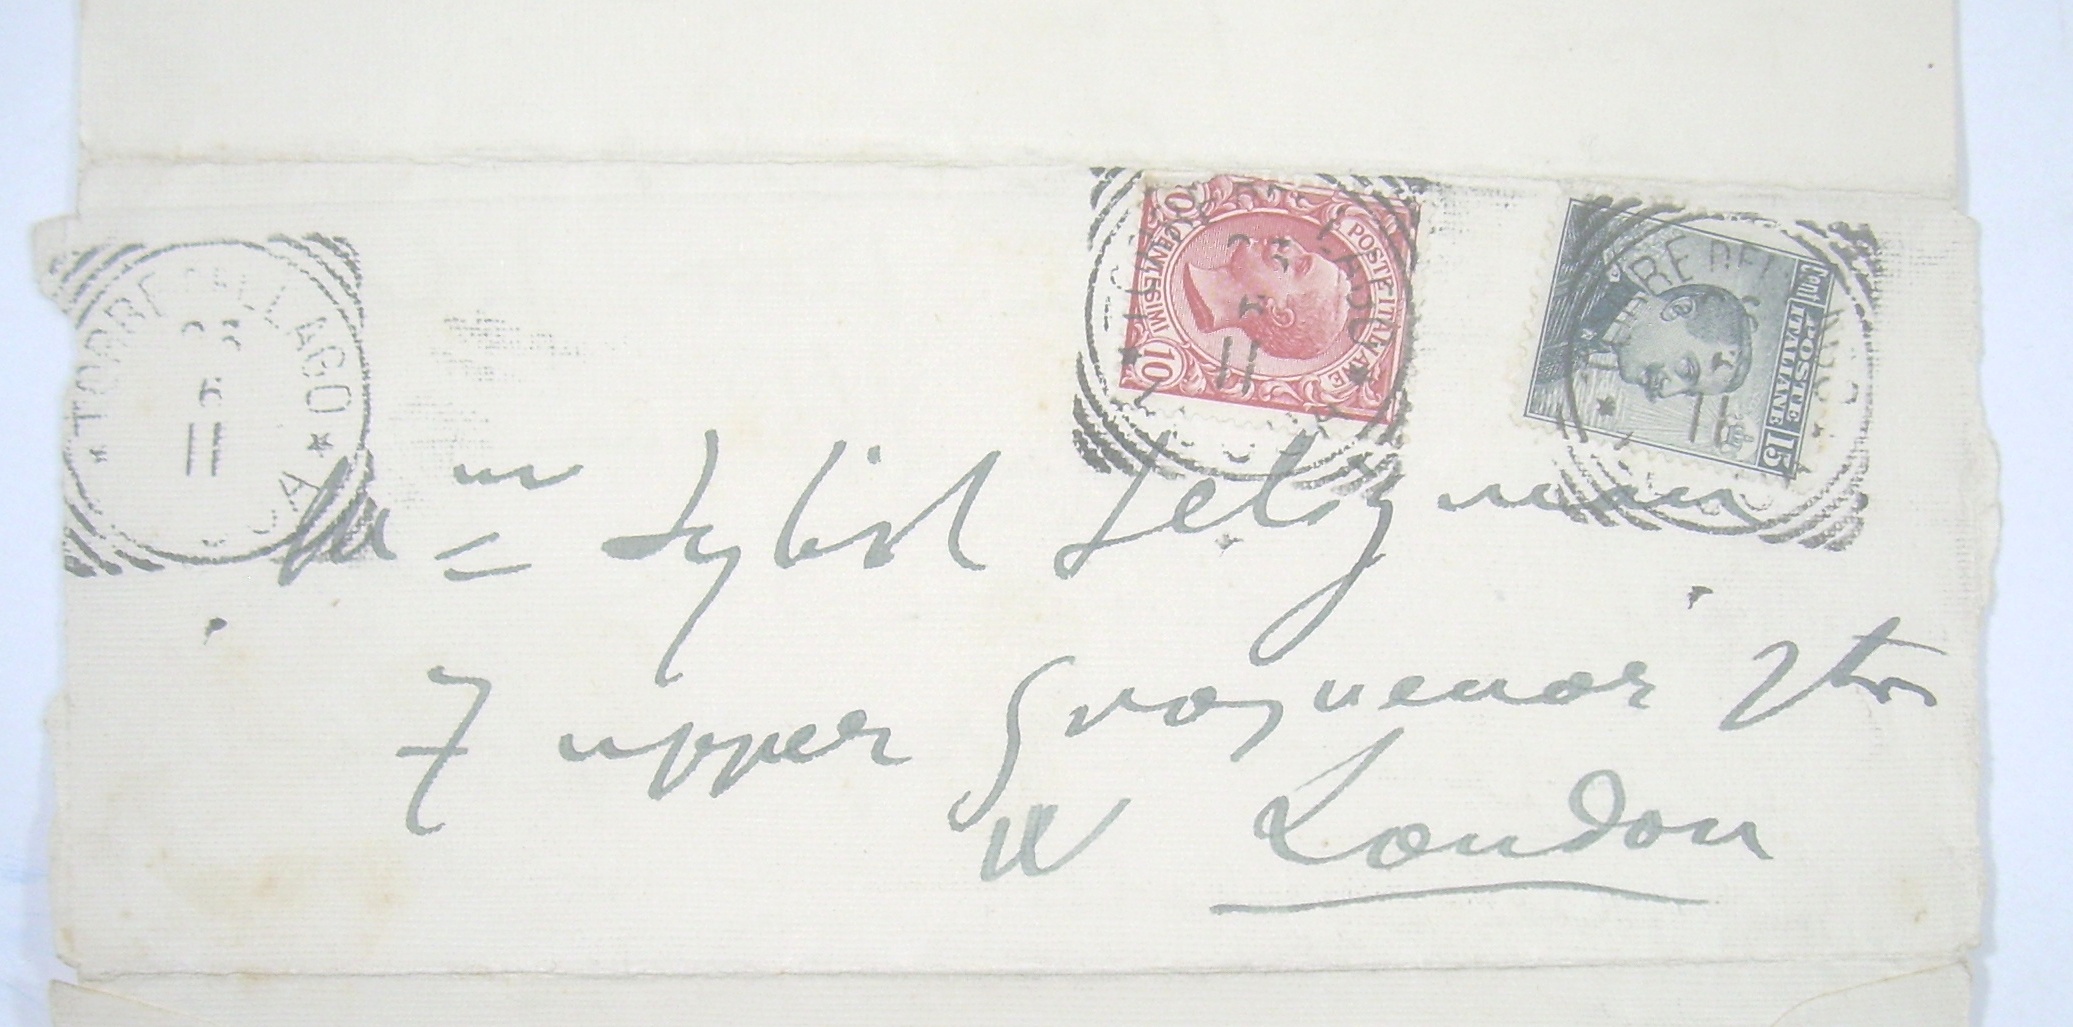 TORRE DEL LAGO
11
POSTE ITALIANE
10 CENTESIMI 10
11
Cent. 15
POSTE ITALIANE
Mm Sybil Seligman
7 upper Grosvenor Str
W London